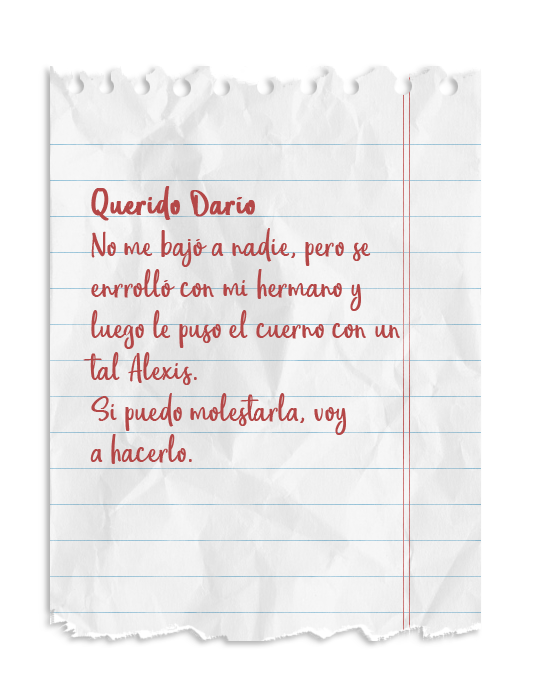 Querido Darío
No me bajó a nadie, pero se
enrrolló con mi hermano y
luego le puso el cuerno con un
tal Alexis.
Si puedo molestarla, voy
a hacerlo.